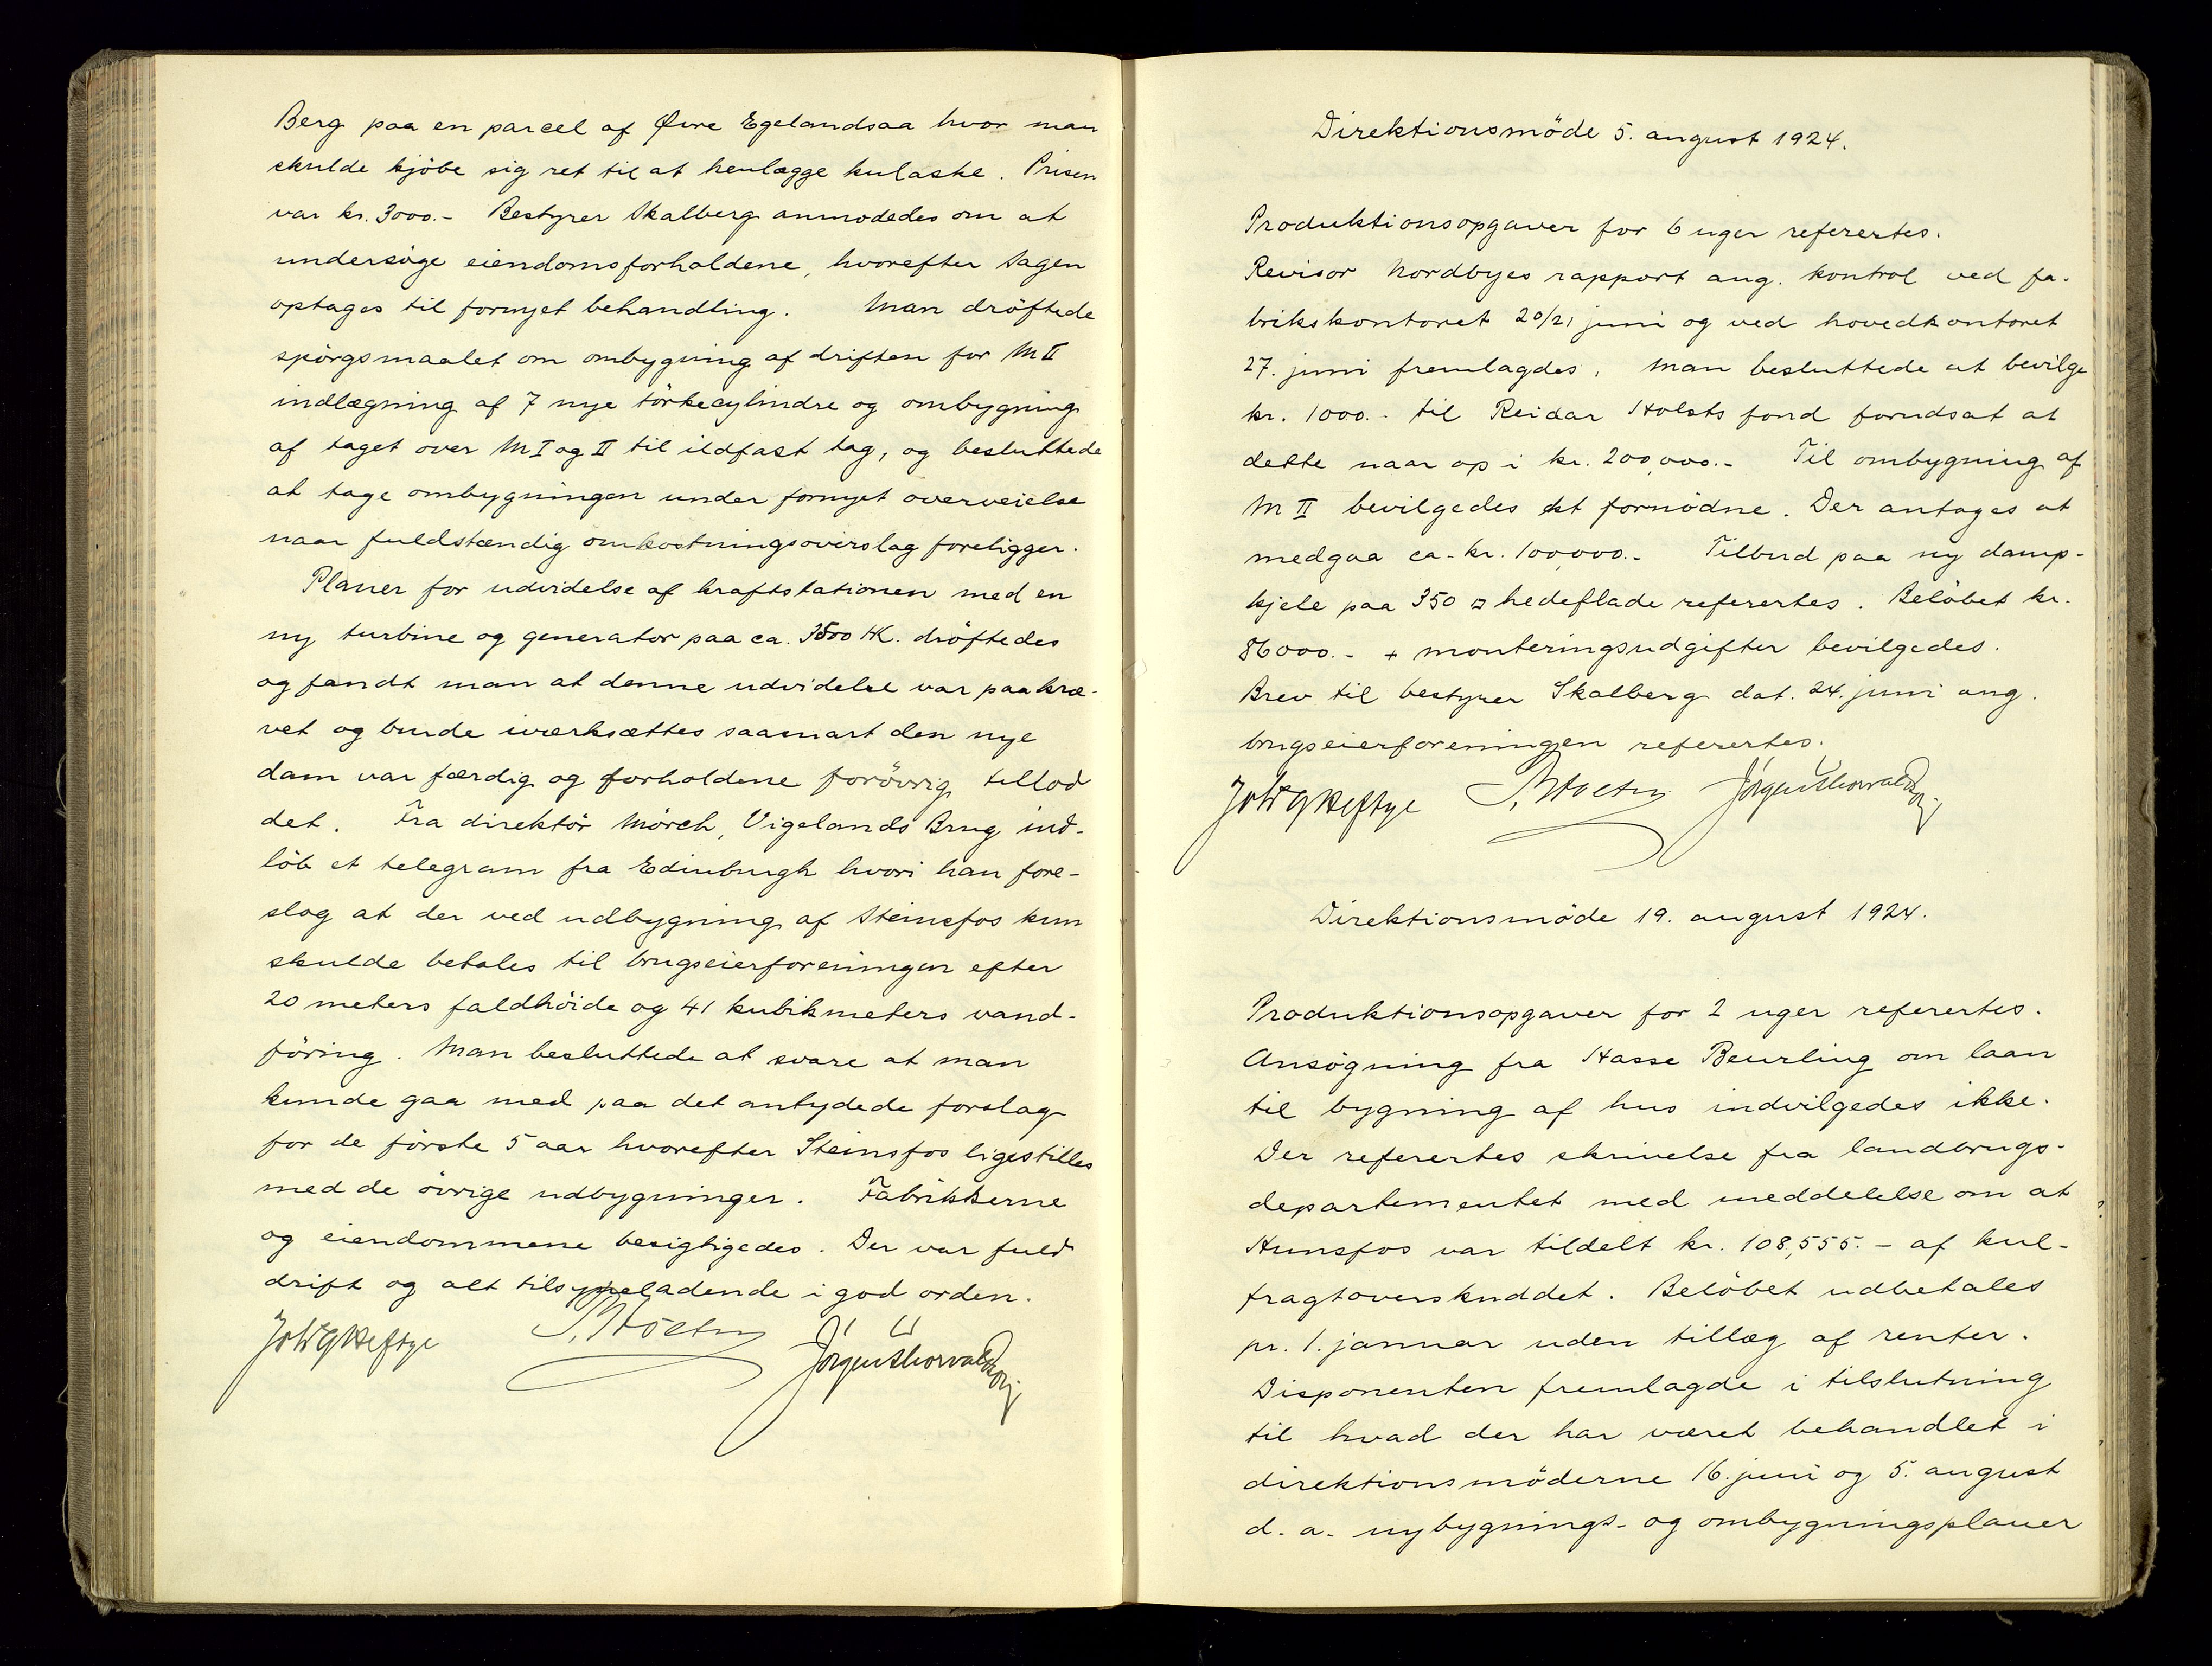 Berg paa en parcel af Øvre Egelandsaa hvor man
skulde kjöbe sig ret til at henlægge kulaske. Prisen
var kr. 3000.- Bestyrer Skalberg anmodedes om at
undersöge eiendomsforholdene, hvorefter sagen
optages til fornyet behandling. Man dröftede
spörgsmaalet om ombygning af driften for M II
indlægning af 7 nye törkecylindre og ombygning
af taget over M I og II til ildfast tag, og besluttede
at tage ombygningen under fornyet overveielse
naar fuldstændig omkostningsoverslag foreligger.
Planer for udvidelse af kraftstationen med en
ny turbine og generator paa ca. 3500 HK. dröftedes
og fandt man at denne udvidelse var paakræ-
vet og burde iværksættes saasnart den nye
dam var færdig og forholdene forövrig tillod
det. Fra direktör Mörch, Vigelands Brug ind-
löb et telegram fra Edinburgh hvori han fore-
slog at der ved udbygning af Steinsfos kun
skulde betales til brugseierforeningen efter
20 meters faldhöide og 41 kubikmeters vand-
föring. Man besluttede at svare at man
kunde gaa med paa det antydede forslag
for de förste 5 aar hvorefter Steinsfos ligestilles
med de övrige udbygninger. Fabrikkerne
og eiendommene besigtigedes. Der var fuld
drift og alt tilsyneladende i god orden.
Jörgen Thorvaldson
Direktionsmöde 5. august 1924.
Produktionsopgaver for 6 uger referertes.
Revisor Nordbyes rapport ang. kontrol ved fa-
brikskontoret 20/21 juni og ved hovedkontoret
27. juni fremlagdes. Man besluttede at bevilge
kr. 1000.- til Reidar Holsts fond forudsat at
dette naar op i kr. 200,000.- Til ombygning af
M II bevilgedes det fornödne. Der antages at
medgaa ca. kr. 100,000.- Tilbud paa ny damp-
kjele paa 350 □ hedeflade referertes. Belöbet kr.
86000.- + monteringsudgifter bevilgedes.
Brev til bestyrer Skalberg dat. 24. juni ang.
brugseierforeningen referertes.
Jörgen Thorvaldson
Direktionsmöde 19. august 1924.
Produktionsopgaver for 2 uger referertes.
Ansögning fra Hasse Beurling om laan
til bygning af hus indvilgedes ikke.
Der referertes skrivelse fra landbrugs-
departementet med meddelelse om at
Hunsfos var tildelt kr. 108,555.- af kul-
fragtoverskuddet. Belöbet udbetales
pr. 1. januar uden tillæg af renter.
Disponenten fremlagde i tilslutning
til hvad der har været behandlet i
direktionsmöderne 16. juni og 5. august
d. a. nybygnings- og ombygningsplaner